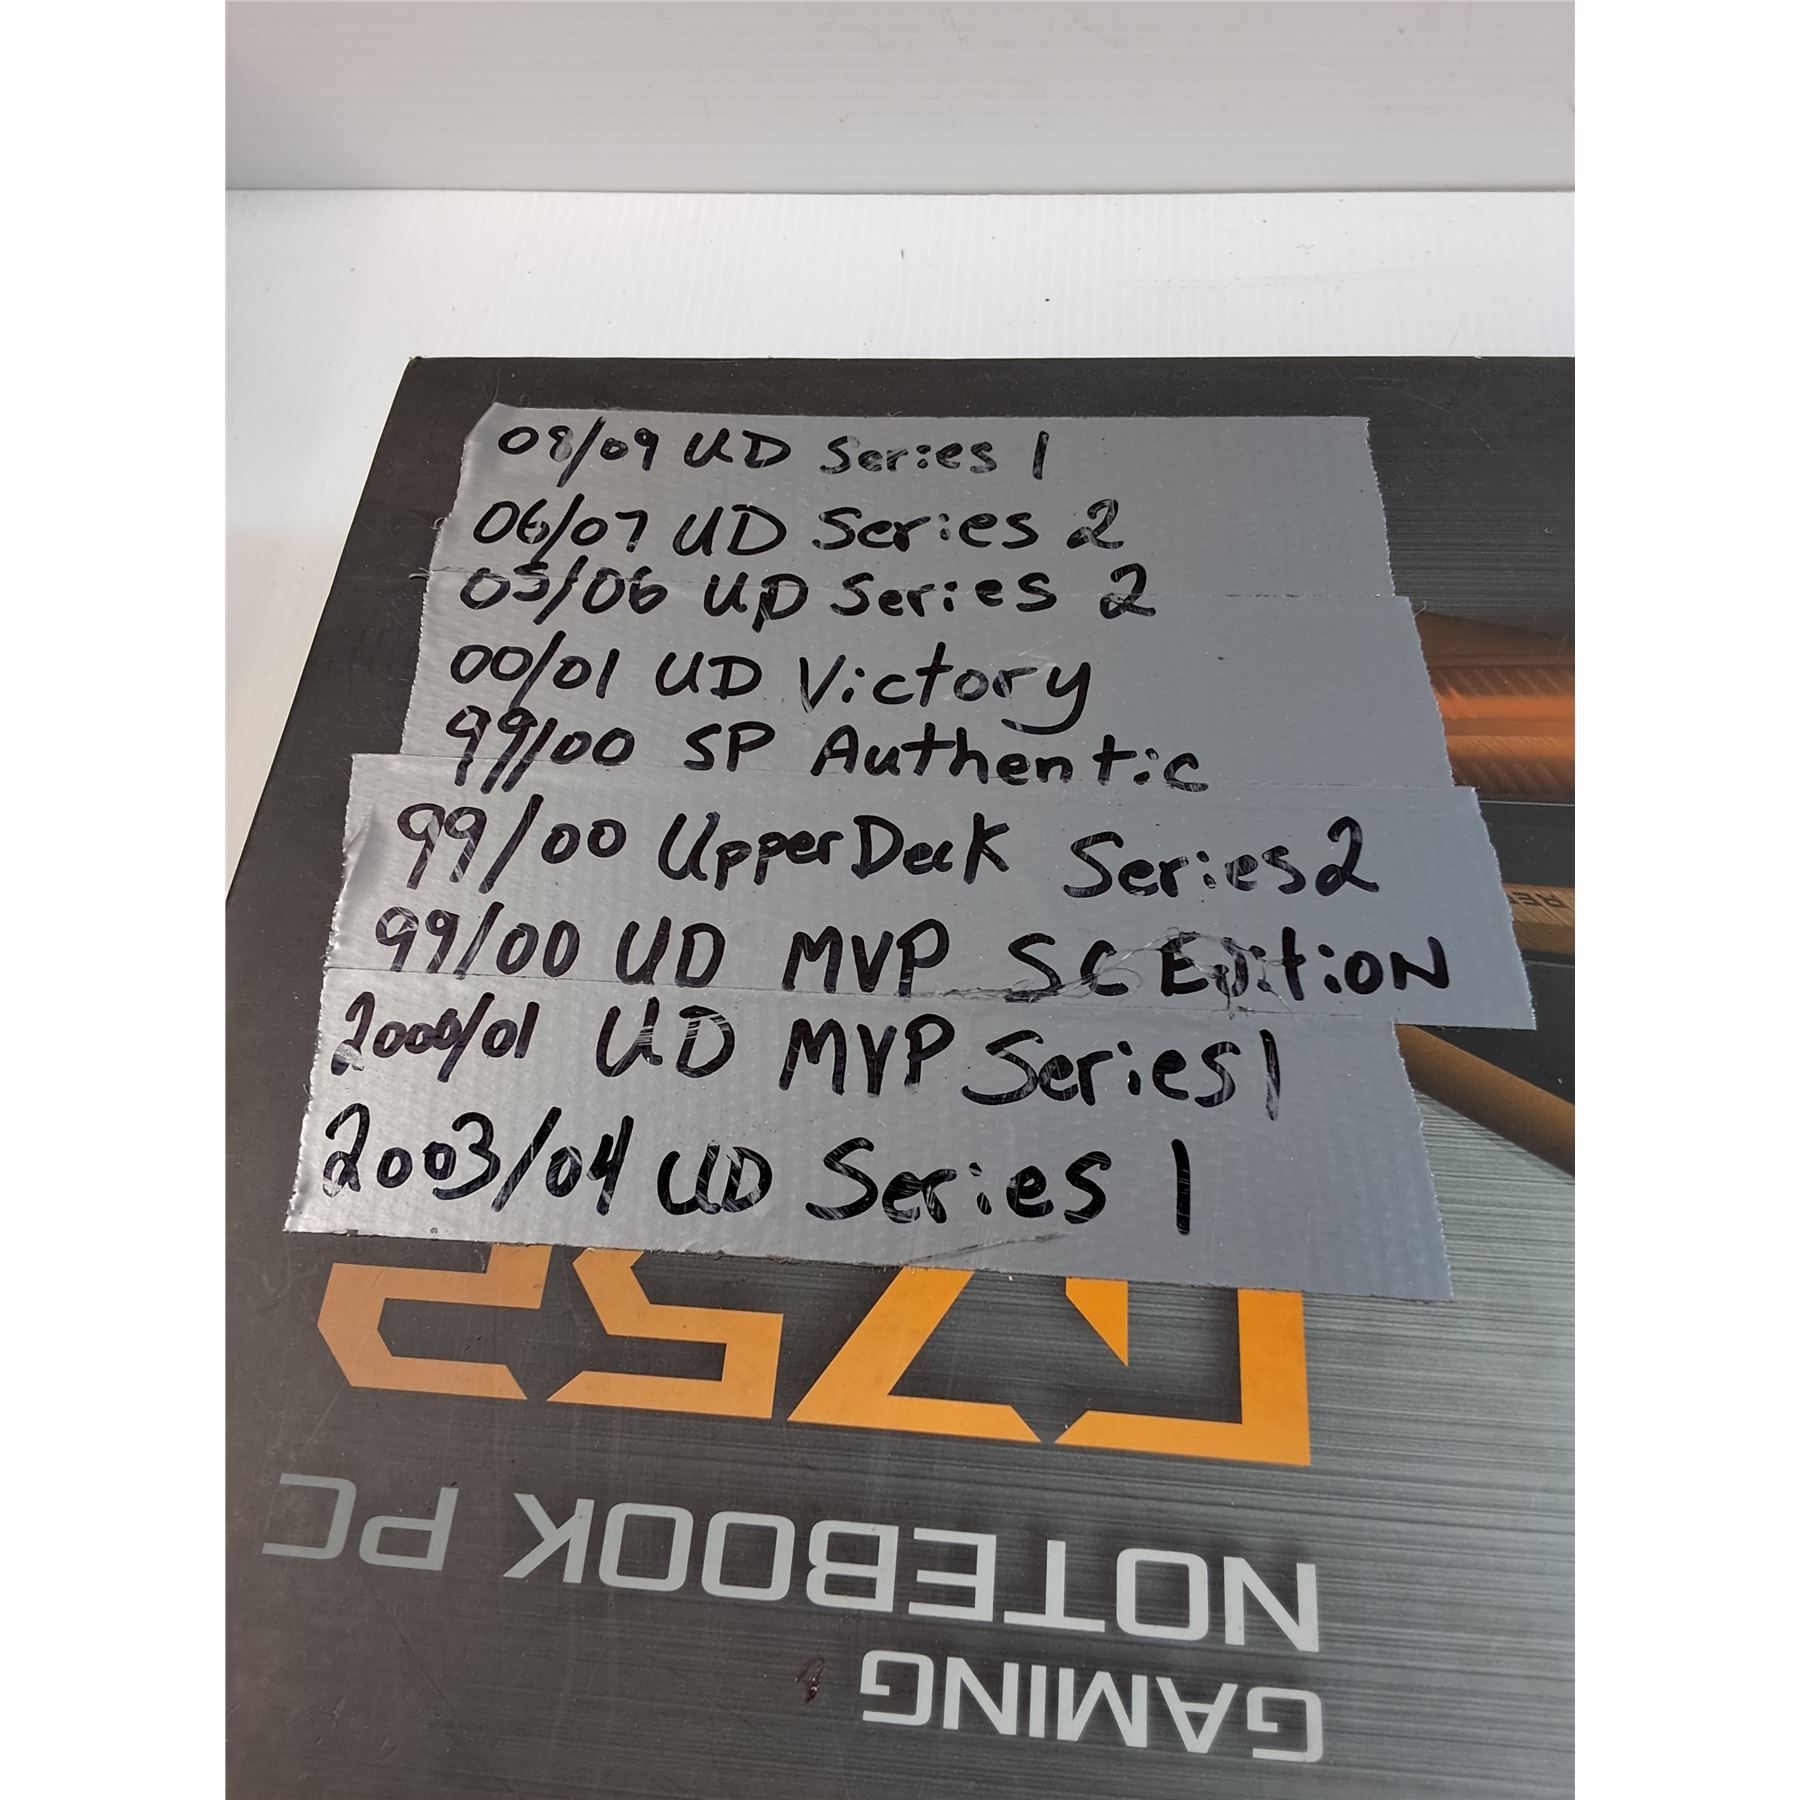 08/09 UD Series 1
06/07 UD Series 2
05/06 UD Series 2
00/01 UD Victory
99/00 SP Authentic
99/00 Upper Deck Series 2
99/00 UD MVP SC Edition
2000/01 UD MVP Series 1
2003/04 UD Series 1
G752
NOTEBOOK PC
GAMING